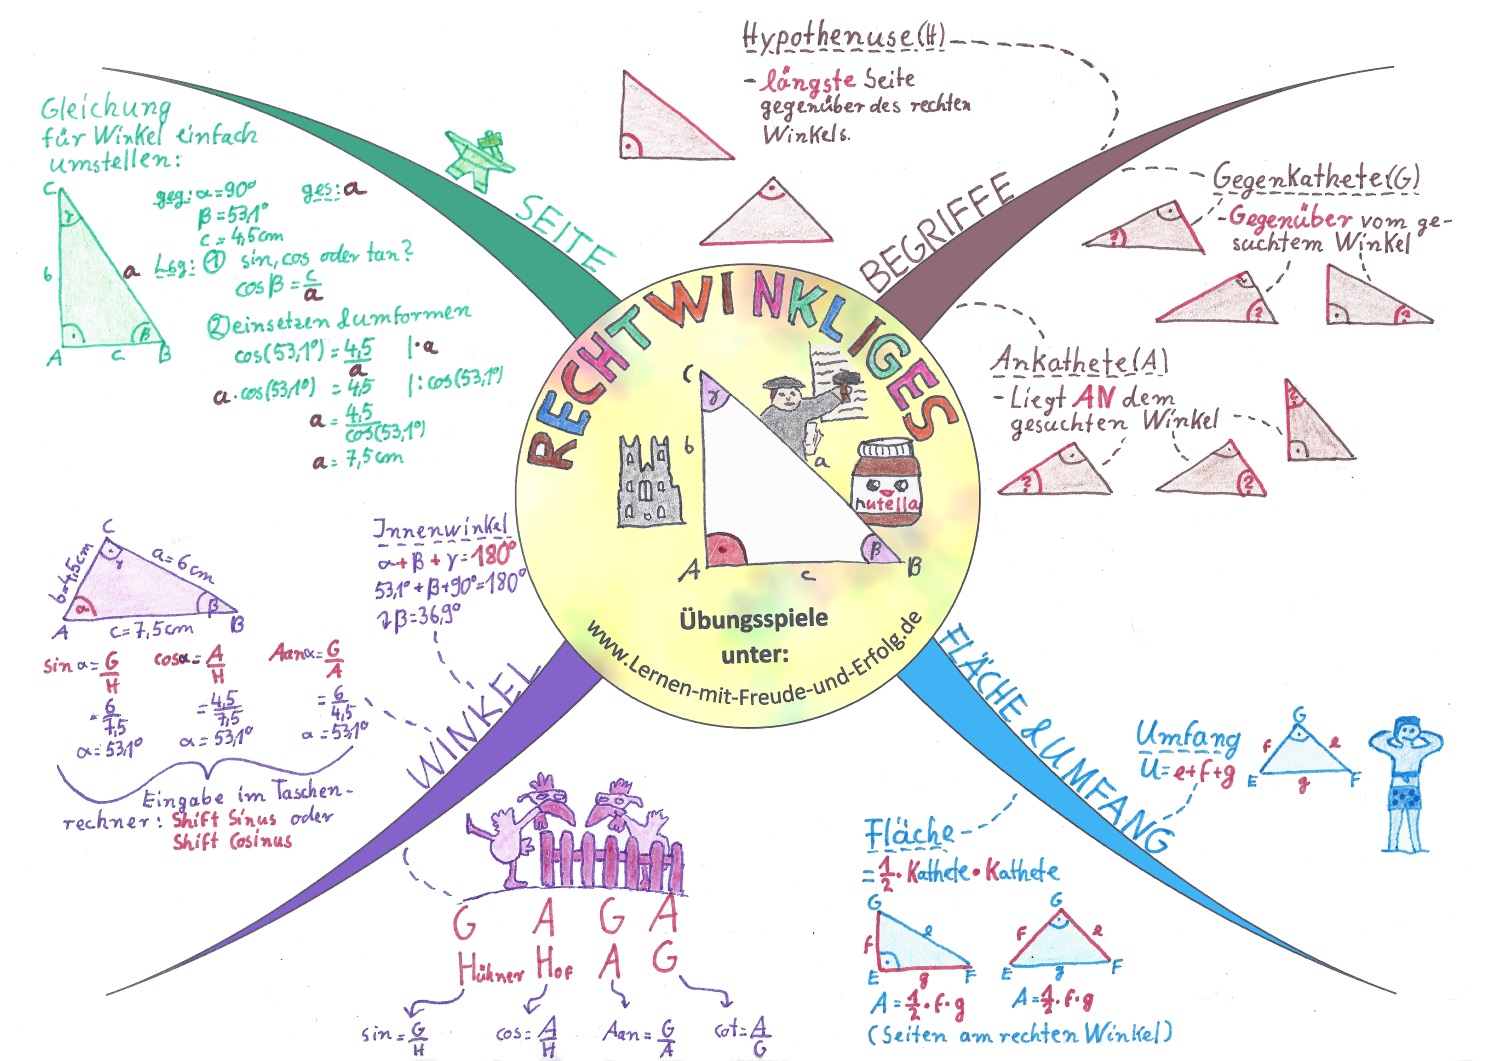 RECHTWINKLIGES
C
γ
b
a
nutella
β
A
c
B
Übungsspiele
unter:
www.Lernen-mit-Freude-und-Erfolg.de
SEITE
Gleichung
für Winkel einfach
umstellen:
C
γ
b
a
β
A
c
B
geg: α=90° ges: a
β=53,1°
c=4,5cm
Lsg: ① sin, cos oder tan?
cos β = c/a
② einsetzen & umformen
cos(53,1°) = 4,5/a |·a
a·cos(53,1°) = 4,5 |:cos(53,1°)
a = 4,5/cos(53,1°)
a = 7,5cm
BEGRIFFE
Hypothenuse(H)
- längste Seite
gegenüber des rechten
Winkels.
Gegenkathete(G)
- Gegenüber vom ge-
suchtem Winkel
?
?
?
Ankathete(A)
- Liegt AN dem
gesuchten Winkel
?
?
?
WINKEL
Innenwinkel
α+β+γ=180°
53,1°+β+90°=180°
↴β=36,9°
C
b=4,5cm
a=6cm
γ
α
β
A
c=7,5cm
B
sin α = G/H cos α = A/H tan α = G/A
= 6/7,5 = 4,5/7,5 = 6/4,5
α=53,1° α=53,1° α=53,1°
Eingabe im Taschen-
rechner: Shift Sinus oder
Shift Cosinus
G A G A
Hühner Hof A G
sin = G/H cos = A/H tan = G/A cot = A/G
FLÄCHE & UMFANG
Umfang
U=e+f+g
G
f
e
E
g
F
Fläche
= 1/2 · Kathete · Kathete
G
f
e
E
g
F
A = 1/2 · f · g
G
f
e
E
g
F
A = 1/2 · f · g
(Seiten am rechten Winkel)